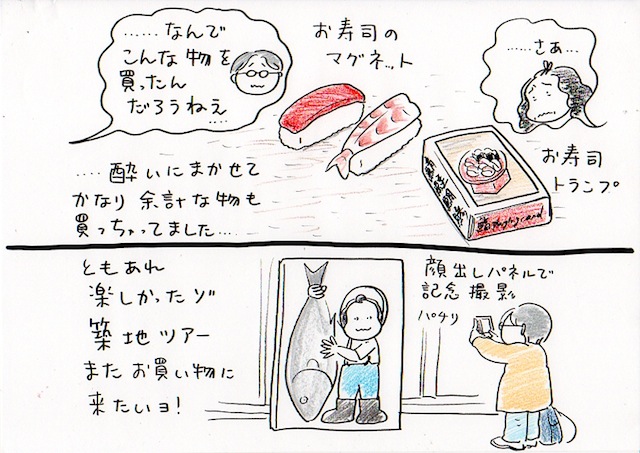 ……なんで
こんな物を
買ったん
だろうねえ
……
お寿司の
マグネット
……さあ…
お寿司
トランプ
……酔いにまかせて
かなり余計な物も
買っちゃってました……
ともあれ
楽しかったゾ
築地ツアー
またお買い物に
来たいヨ！
顔出しパネルで
記念撮影
パチリ